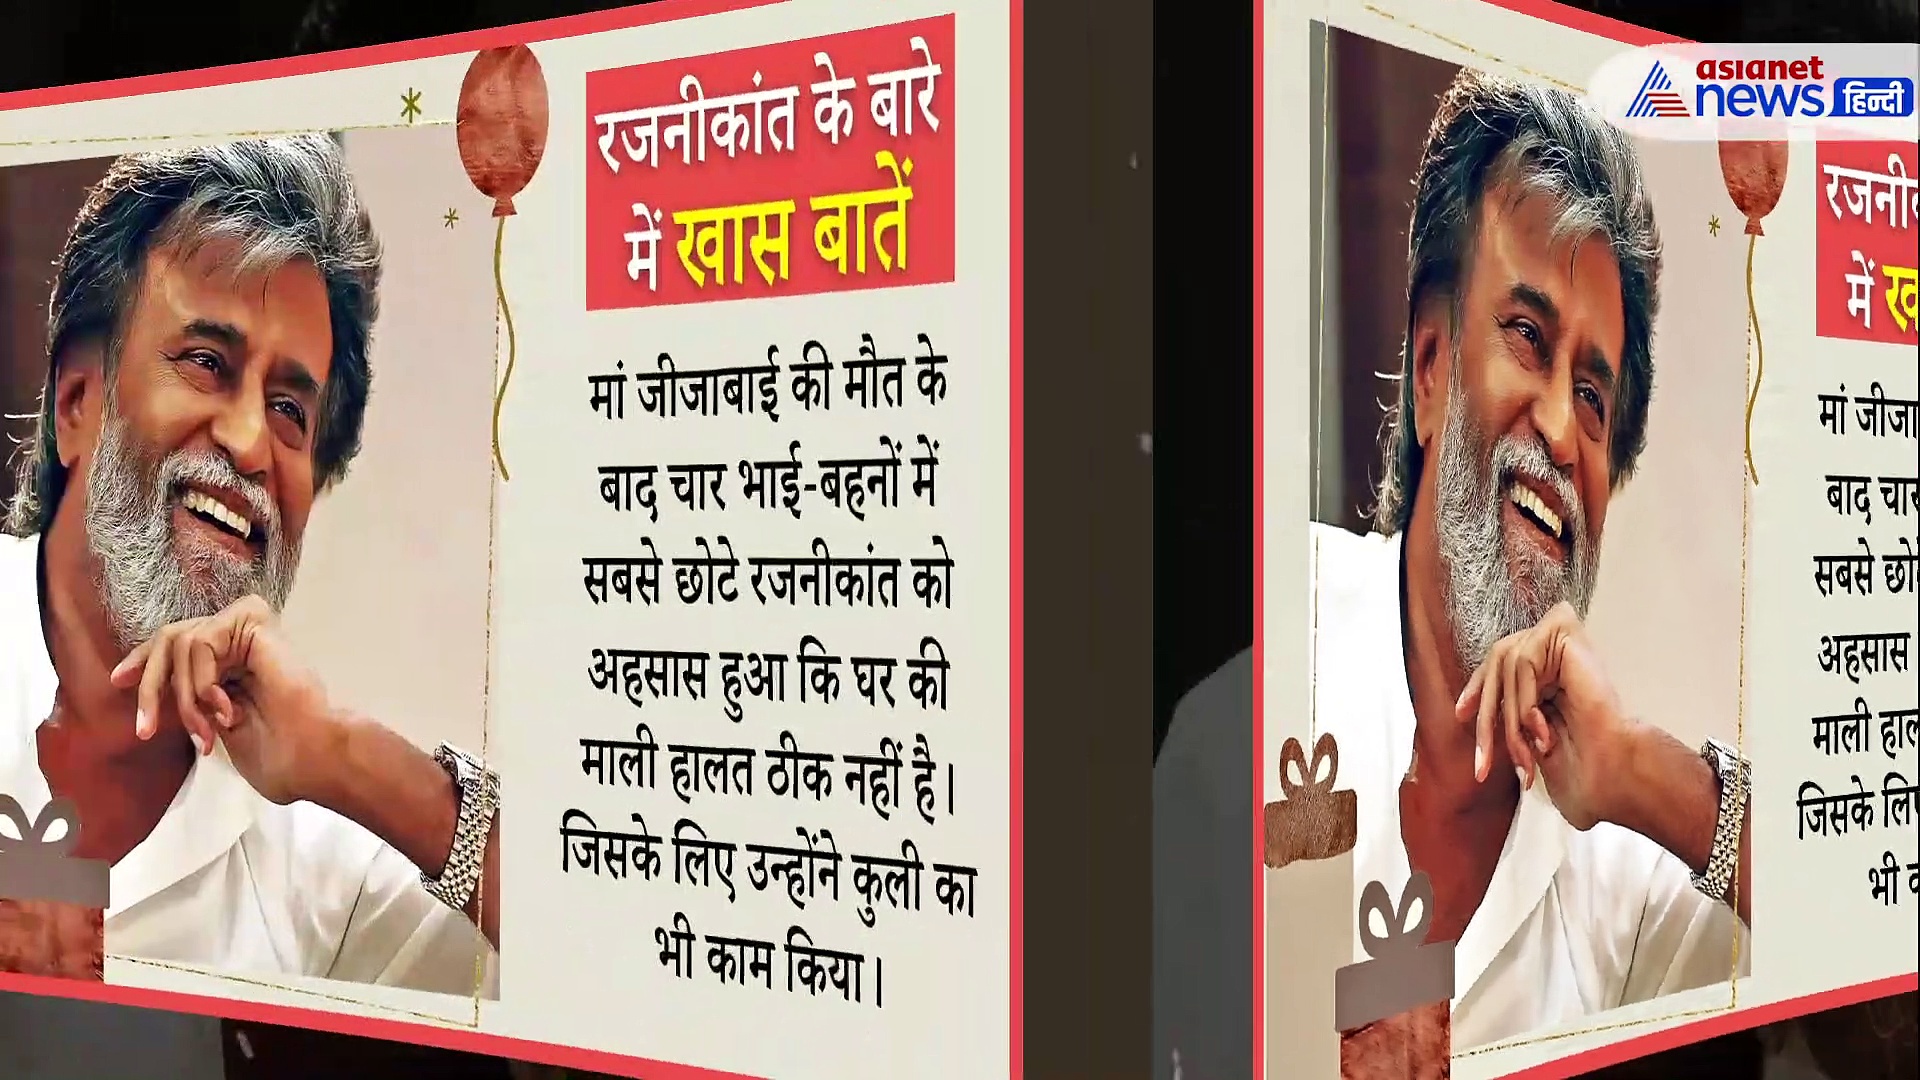 रजनीकांत के बारे
में खास बातें
मां जीजाबाई की मौत के
बाद चार भाई-बहनों में
सबसे छोटे रजनीकांत को
अहसास हुआ कि घर की
माली हालत ठीक नहीं है।
जिसके लिए उन्होंने कुली का
भी काम किया।
asianet
news हिन्दी
में
मां
बाद
सबसे
अहसास
माली
जिसके
भी